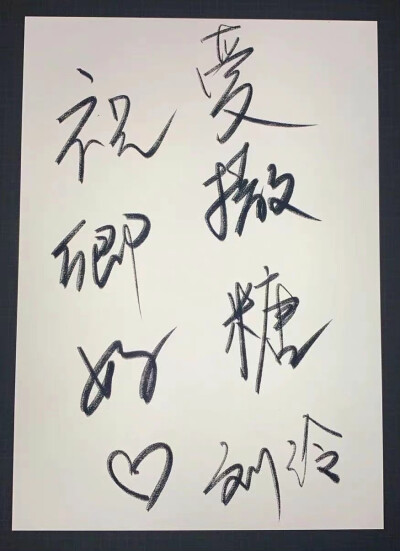 祝卿好♡
爱撒糖
刘泠